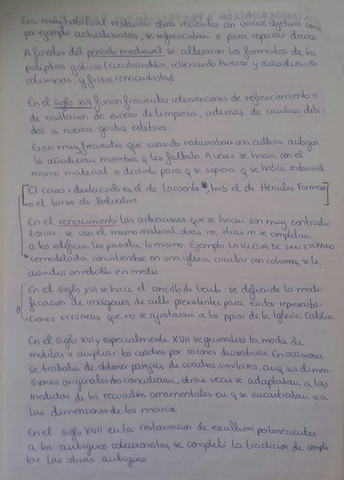 Era muy habitual restaurar obras recientes con varios objetivos como
por ejemplo actualizarlas, se refrescaban o para reparar daños
A finales del periodo medieval se alteraron los formatos de los
polípticos góticos (cuadrandolos, rellenando huecos y añadiendo
columnas, y frisos renacentistas)
En el siglo XVI fueron frecuentes intervenciones de refrescamiento o
de ocultación de exceso de limpieza, además de cambios debi-
dos a nuevos gustos estéticos.
Eran muy frecuentes que cuando restauraban una cultura antigua
le añadieran miembros q les faltaba. A veces se hacía con el
mismo material o distinto para q se supiera q se había restaurado
El caso + destacado es el de Laoconte, tmb el de Hércules Farnese
o el torso de Belvedere
En el renacimiento las actuaciones que se hacen son muy contradic-
torias: se usa el mismo material, otras no, otras no se completan
a los edificios les pasaba lo mismo. Ejemplo LA IGLESIA DE SAN STEFANO
remodelada convirtiéndose en una iglesia circular con columnas, se le
añadió un en medio
En el siglo XVI se hace el concilio de trento se defiende la modi-
ficación de imágenes de culto preexistentes para evitar representa-
ciones erróneas que no se ajustaran a los ppios de la Iglesia Católica
En el siglo XVI y especialmente XVII se generalizó la moda de
mutilar o ampliar los cuadros por razones decorativas. En ocasiones
se trataba de obtener parejas de cuadros similares, aunq sus dimen-
siones originales no coincidieran, otras veces se adaptaban a las
medidas de los recuadros ornamentales en q se encontraban o a
las dimensiones de los marcos.
En el siglo XVII en la restauración de esculturas pertenecientes
a los antiguos coleccionistas se completó la tradición de comple-
tar las obras antiguas